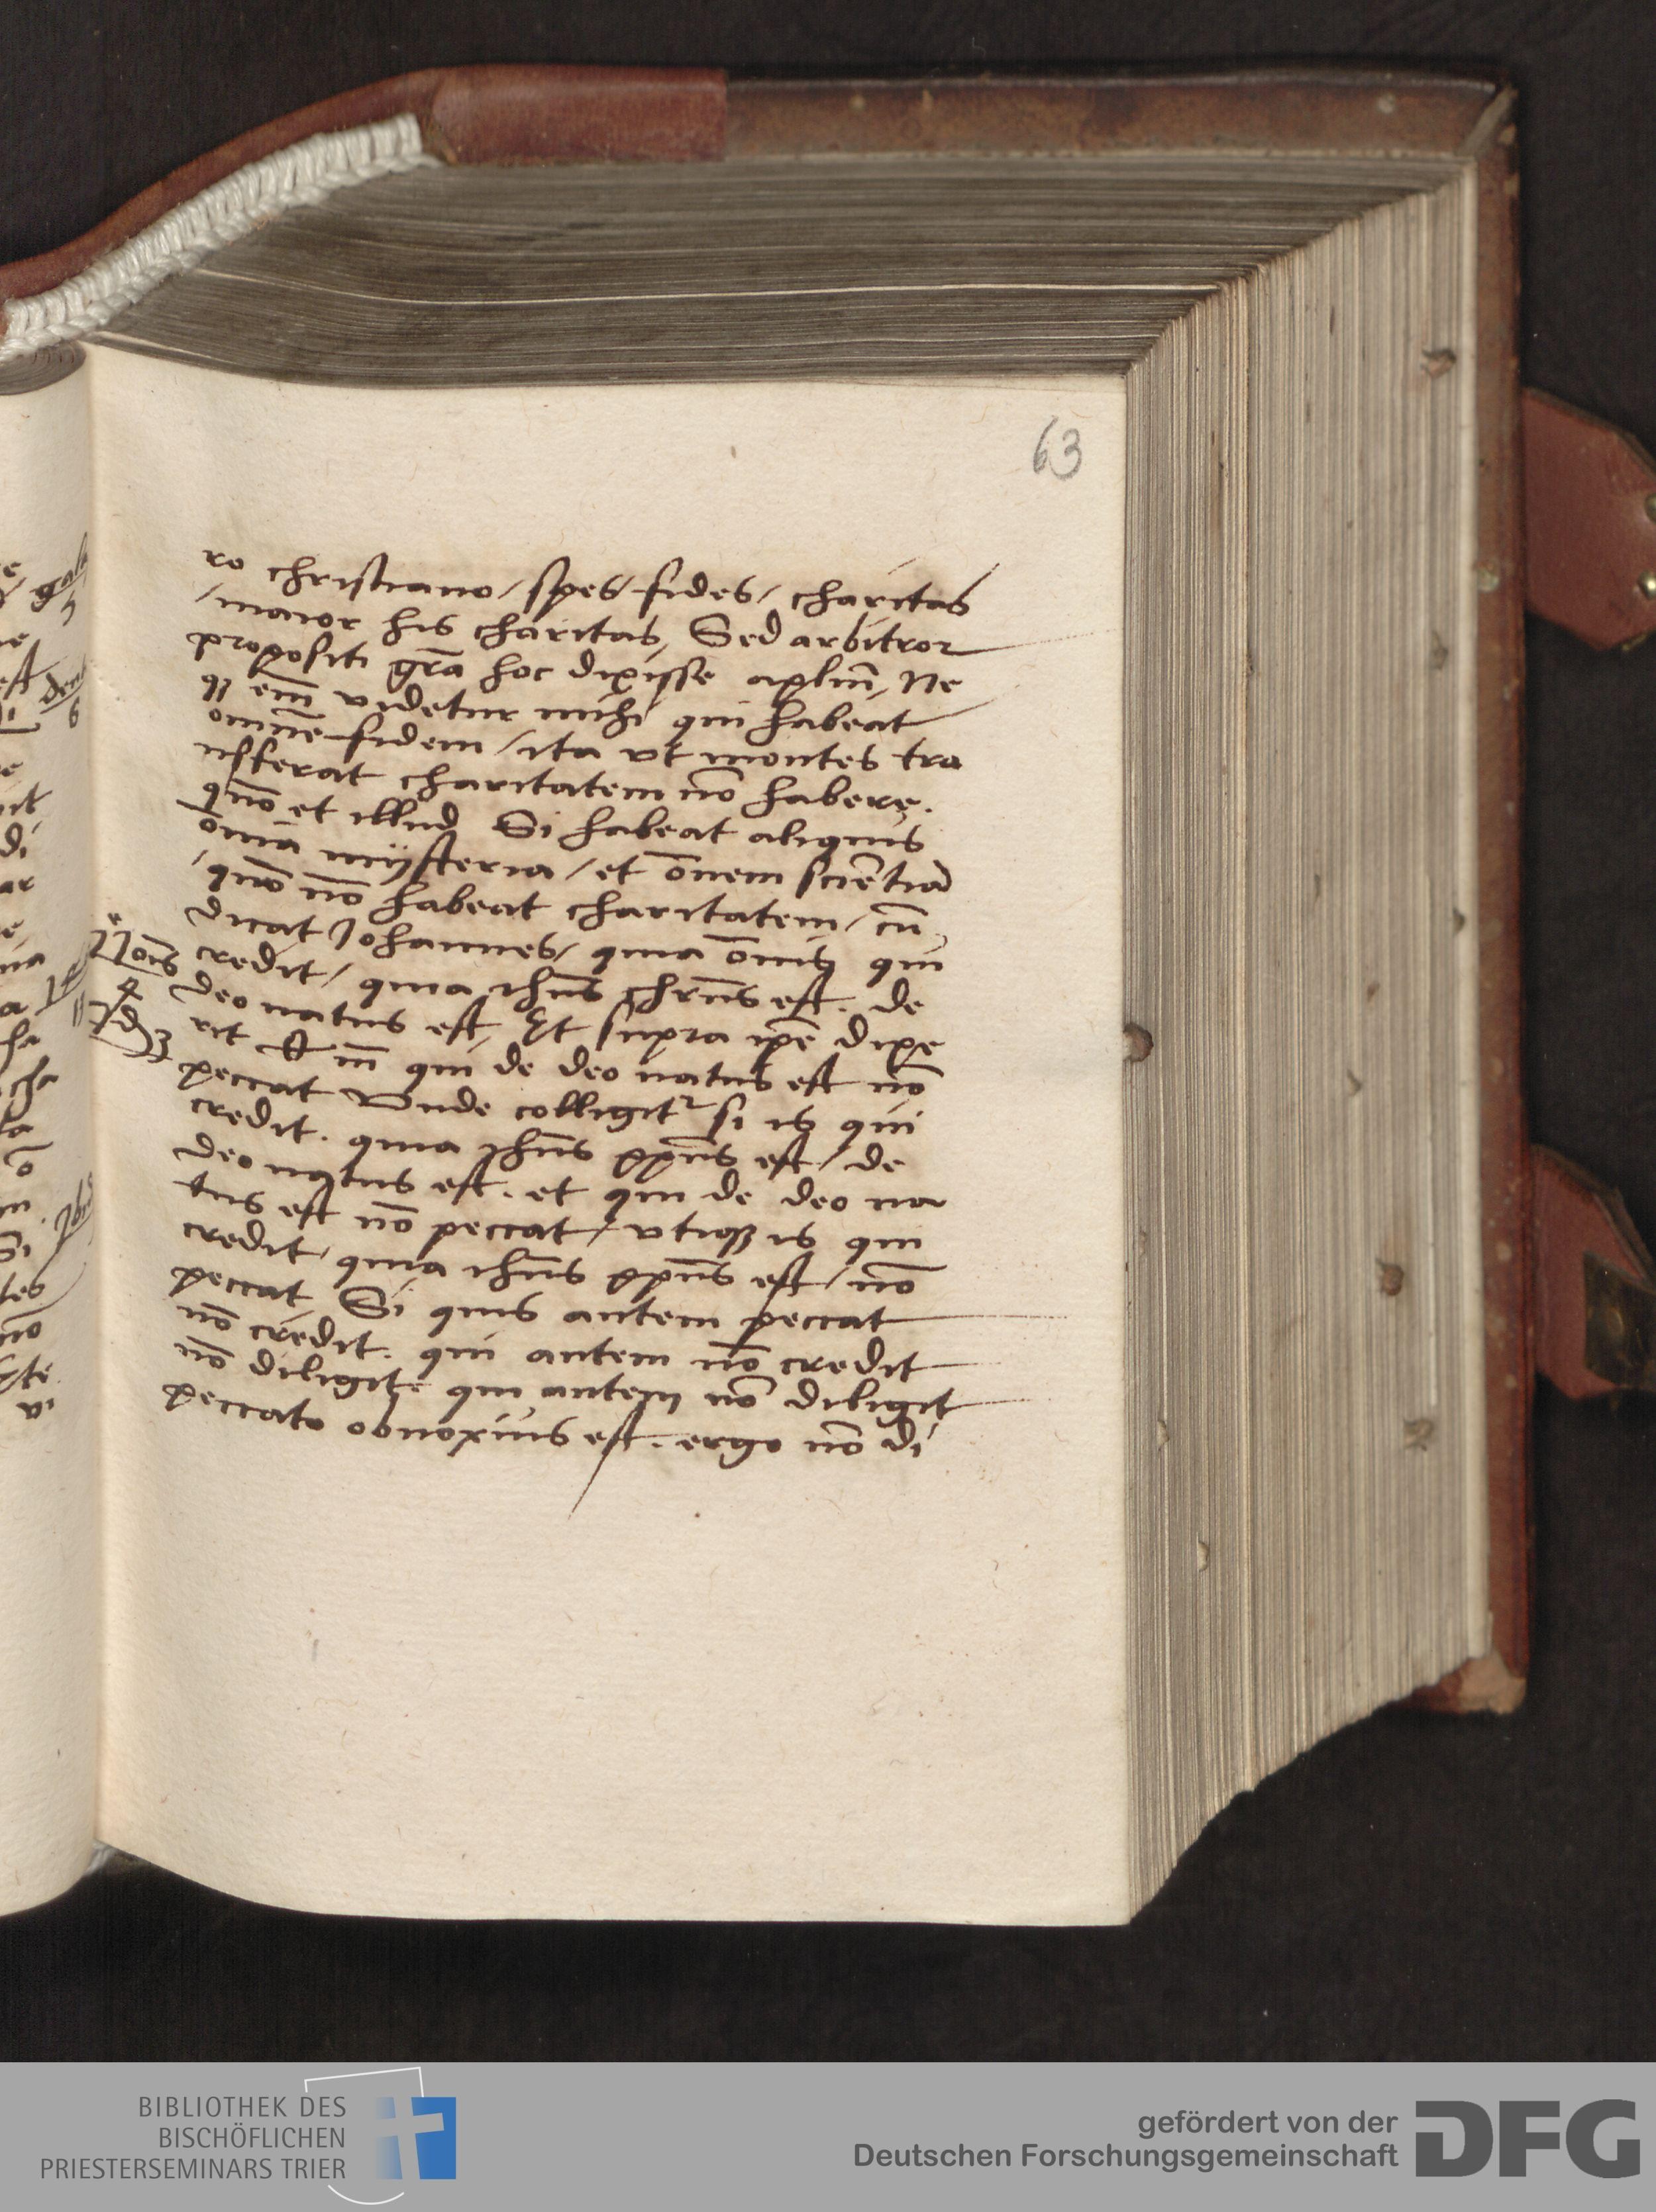 63
ro christiano / spes / fides / charitas
/ maior his charitas, Sed arbitror
propositi gr̄a hoc dixisse aplm̄, Ne
qȝ em̄ videtur mihi qui habeat
omnē fidem / ita vt montes tra
nsferat charitatem nō habere.
quō et illud Si habeat aliquis
om̄ia mysteria / et ōnem sciētiā
/ quō nō habeat charitatem / cū
dicat Johannes / quia ōnis qui
credit / quia ihūs chrūs est. de
deo natus est, Et supra ipē dixe
rit qm̄ qui de deo natus est nō
peccat Vnde colligitr si is qui
credit. quia ihūs xpūs est / de
deo natus est. et qui de deo na
tus est nō peccat / vtiqȝ is qui
credit / quia ihūs xpūs est / nō
peccat, Si quis autem peccat
nō credit. qui autem nō credit
nō diligit. qui autem nō diligit
peccato obnoxius est. ergo nō di
Joīs
BIBLIOTHEK DES
BISCHÖFLICHEN
PRIESTERSEMINARS TRIER
gefördert von der
Deutschen Forschungsgemeinschaft
DFG